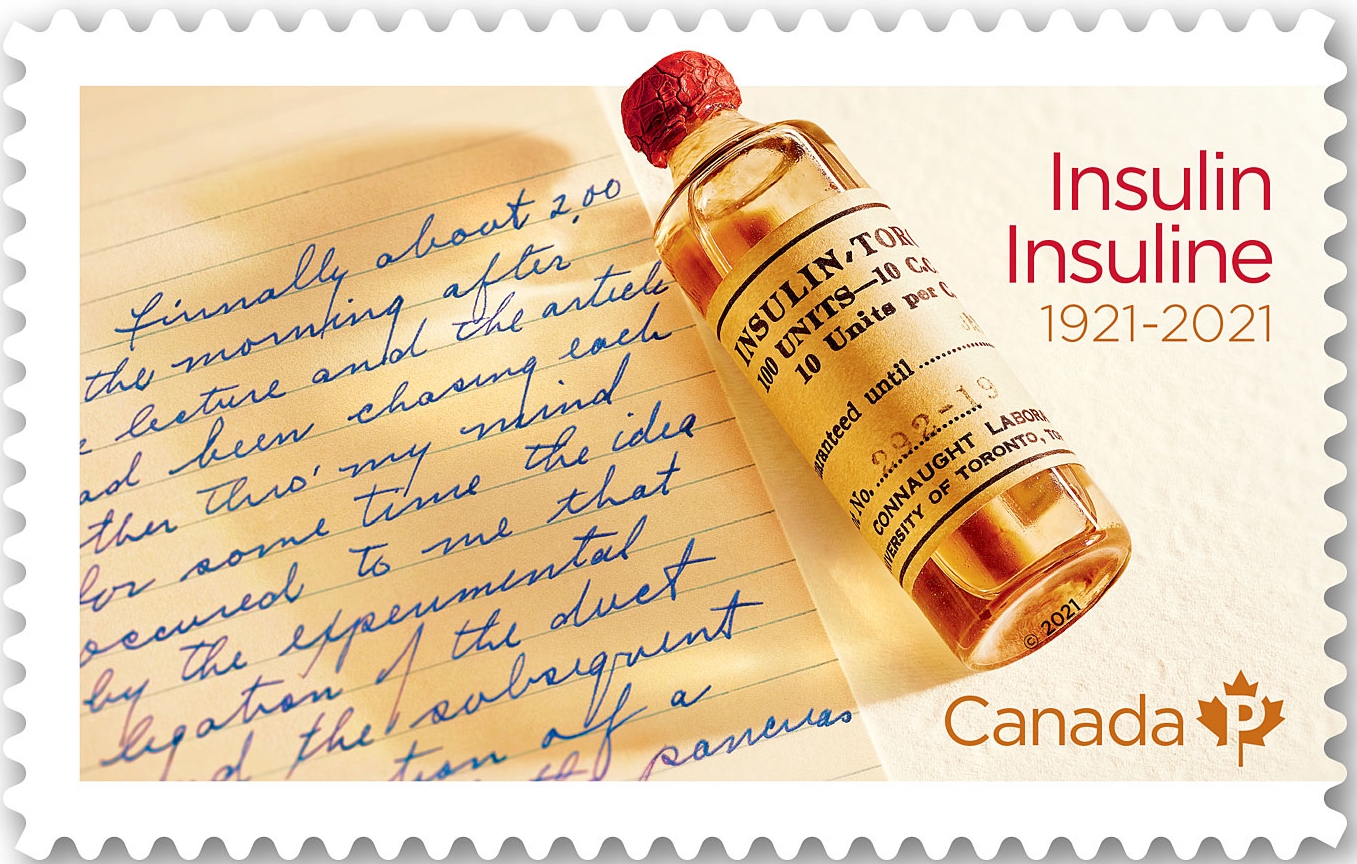 finnally about 2,00
the morning after
lecture and the article
ad been chasing each
ther thro' my mind
for some time the idea
occured to me that
by the experimental
ligation of the duct
d the subsequent
tion of a
pancreas
INSULIN, TORO
100 UNITS—10 C.C.
10 Units per C.
ranteed until
No. 292-19
CONNAUGHT LABORA
VERSITY OF TORONTO, TO
© 2021
Insulin
Insuline
1921-2021
Canada P